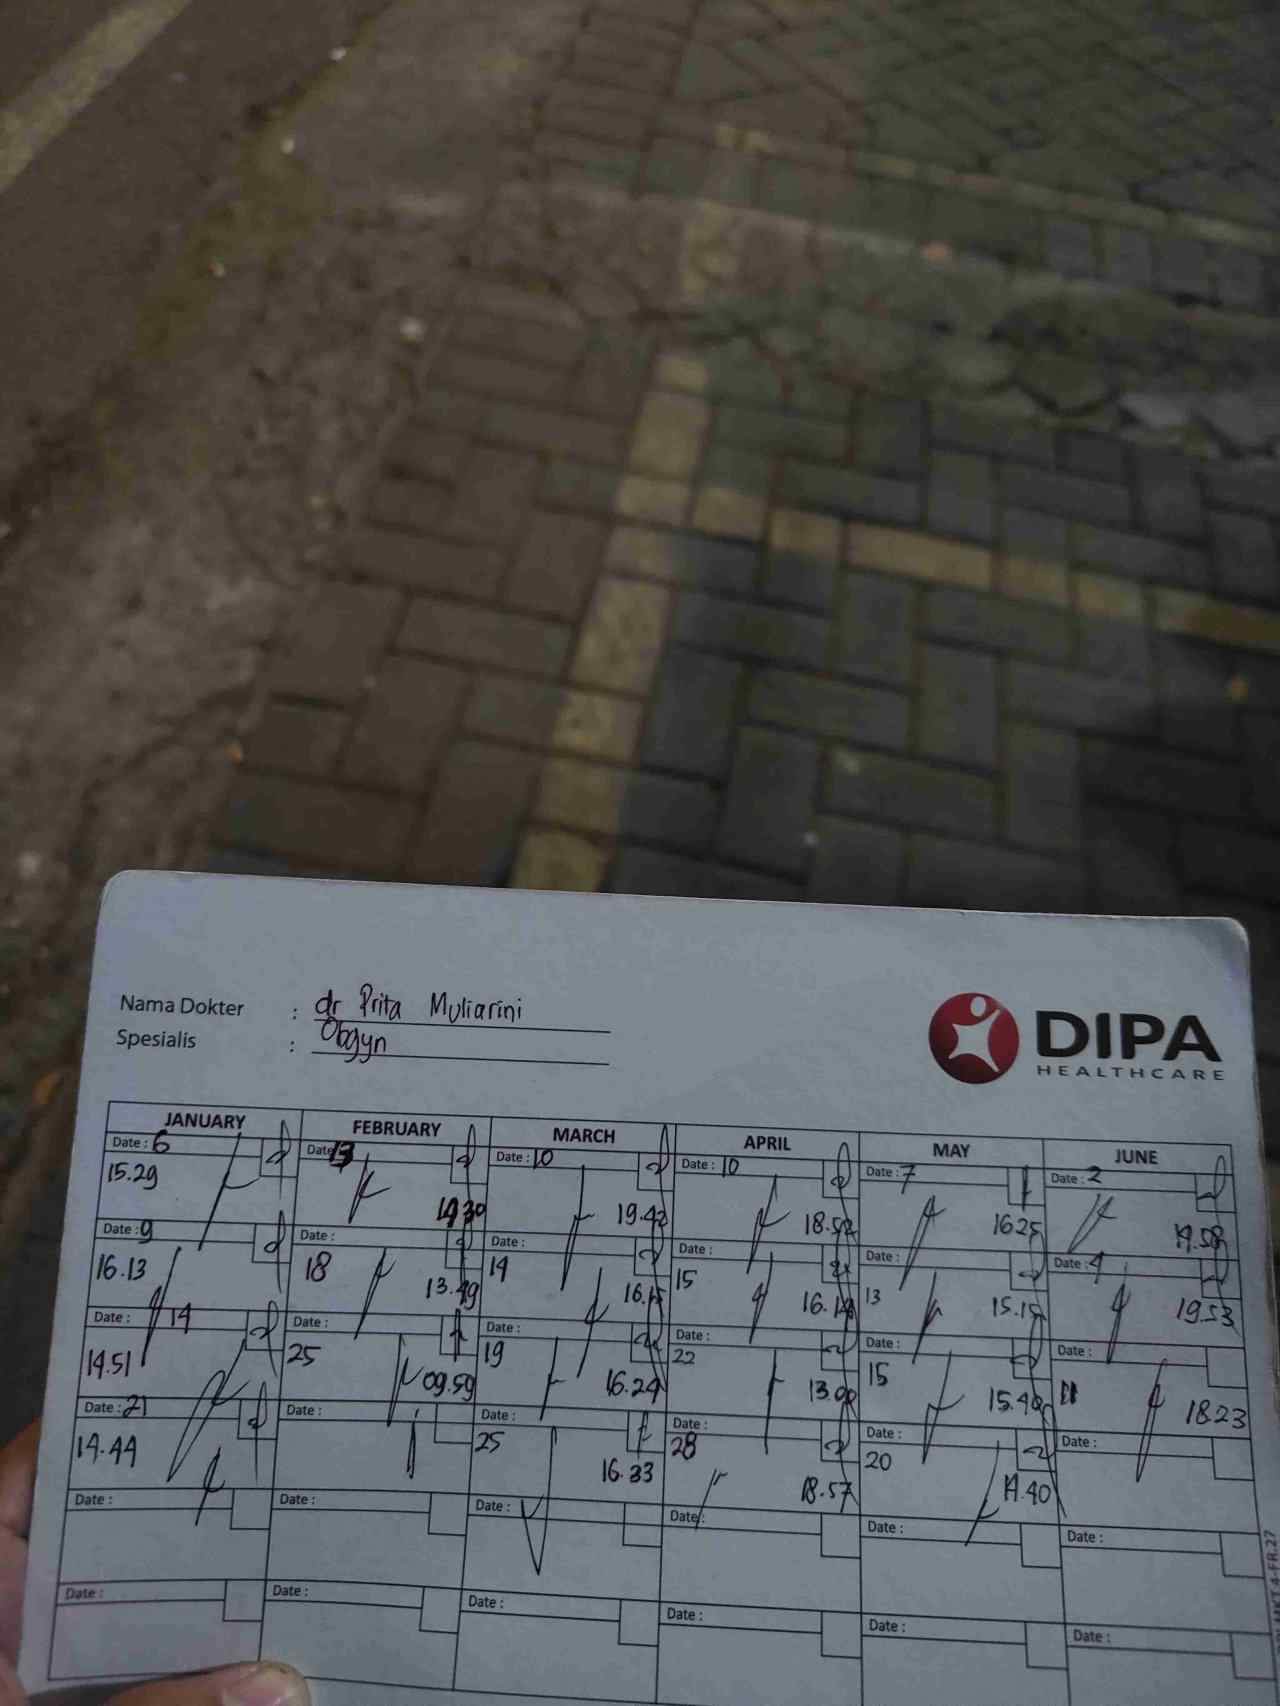 Nama Dokter : dr Prita Muliarini
Spesialis : Obgyn
DIPA
HEALTHCARE
JANUARY FEBRUARY MARCH APRIL MAY JUNE
Date : 6 Date : 13 Date : 10 Date : 10 Date : 7 Date : 2
15.29 19.42 18.52 1625
Date : 9 Date : Date : Date : Date : Date : 4
16.13 18 13.49 14 16.15 15 13 15.15 19.53
Date : 14 Date : Date : Date : Date : Date :
14.51 25 09.59 19 16.24 22 13.00 15 15.40 11 1823
Date : 21 Date : Date : Date : Date : Date :
14.44 25 16.33 28 18.57 20
Date : Date : Date : Date : Date : Date :
Date : Date : Date : Date : Date : Date :